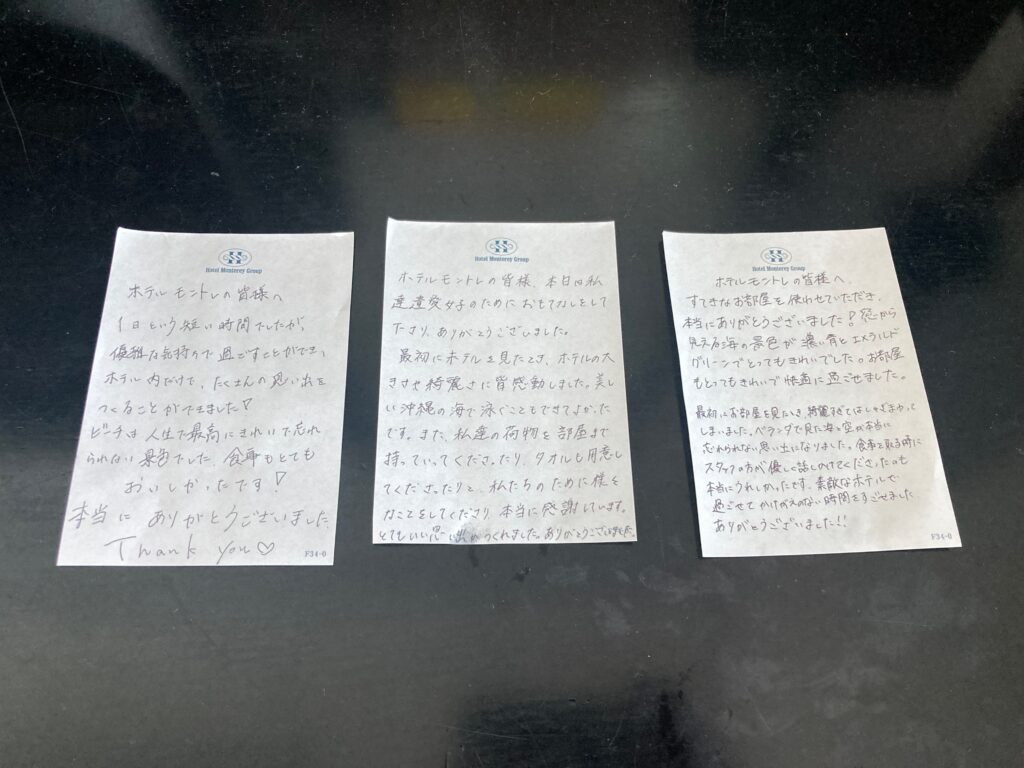 Hotel Monterey Group
ホテルモントレの皆様へ
1日という短い時間でしたが、
優雅な気持ちで過ごすことができ、
ホテル内だけで、たくさんの思い出を
つくることができました!
ビーチは人生で最高にきれいで忘れ
られない景色でした。食事もとても
おいしかったです!
本当に ありがとうございました。
Thank you♡
F34-0
Hotel Monterey Group
ホテルモントレの皆様、本日は私
達遺愛女子のためにおもてなしをして
下さり、ありがとうございました。
最初にホテルを見たとき、ホテルの大
きさや綺麗さに皆感動しました。美し
い沖縄の海で泳ぐこともできてよかった
です。また、私達の荷物を部屋まで
持っていってくださったり、タオルも用意し
てくださったりと、私たちのために様々
なことをしてくださり、本当に感謝しています。
とてもいい思い出がつくれました。ありがとうございました。
Hotel Monterey Group
ホテルモントレの皆様へ
すてきなお部屋を使わせていただき、
本当にありがとうございました!窓から
見える海の景色が濃い青とエメラルド
グリーンでとってもきれいでした。お部屋
もとってもきれいで快適に過ごせました。
最初にお部屋を見たとき、綺麗すぎてはしゃぎまわって
しまいました。ベランダで見た海と空が本当に
忘れられない思い出になりました。食事を取る時に
スタッフの方が優しく話しかけてくださったのも
本当にうれしかったです。素敵なホテルで
過ごせてかけがえのない時間をすごせました
ありがとうございました!!
F34-0